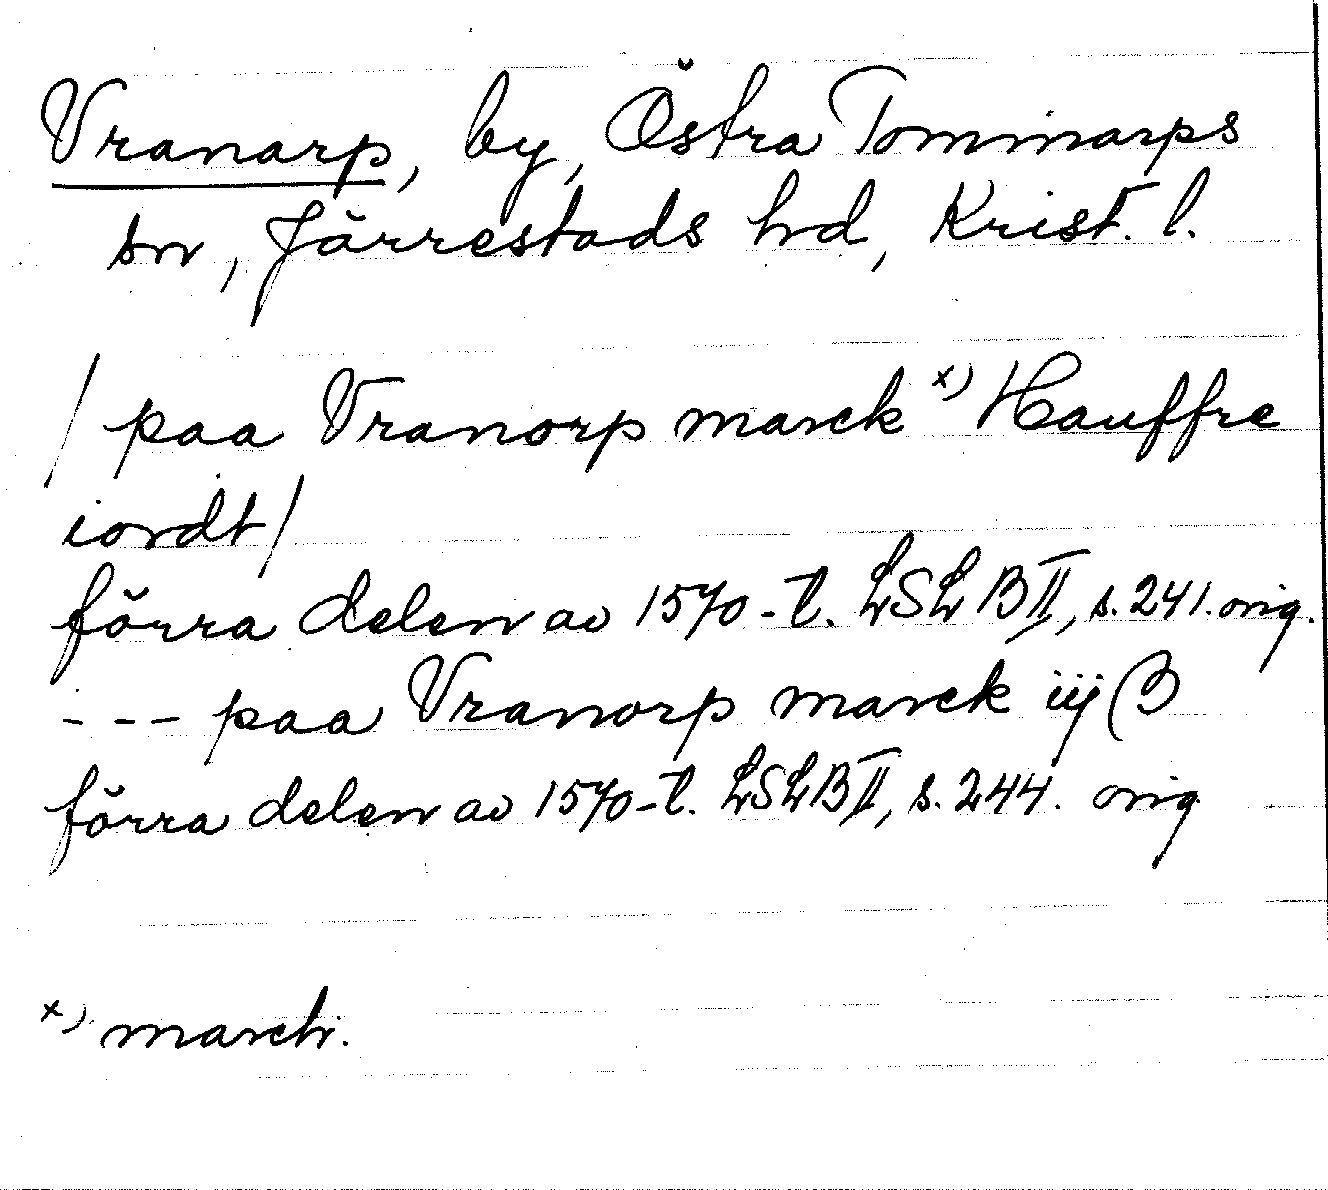 Vranarp, by, Östra Tommarps
sn, Järrestads hd, Krist. l.
/ paa Vranorp marck x) Hauffre
iordt /
förra delen av 1570-t. LSLB II, s. 241. orig.
--- paa Vranorp marck iij β
förra delen av 1570-t. LSLB II, s. 244. orig
x) march.